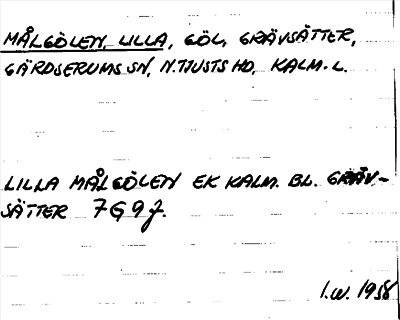 MÅLGÖLEN, LILLA, GÖL, GRÄVSÄTTER,
GÄRDSERUMS SN, N. TJUSTS HD, KALM. L.
LILLA MÅLGÖLEN EK KALM. BL. GRÄV-
SÄTTER 7G9J.
I.W. 1958